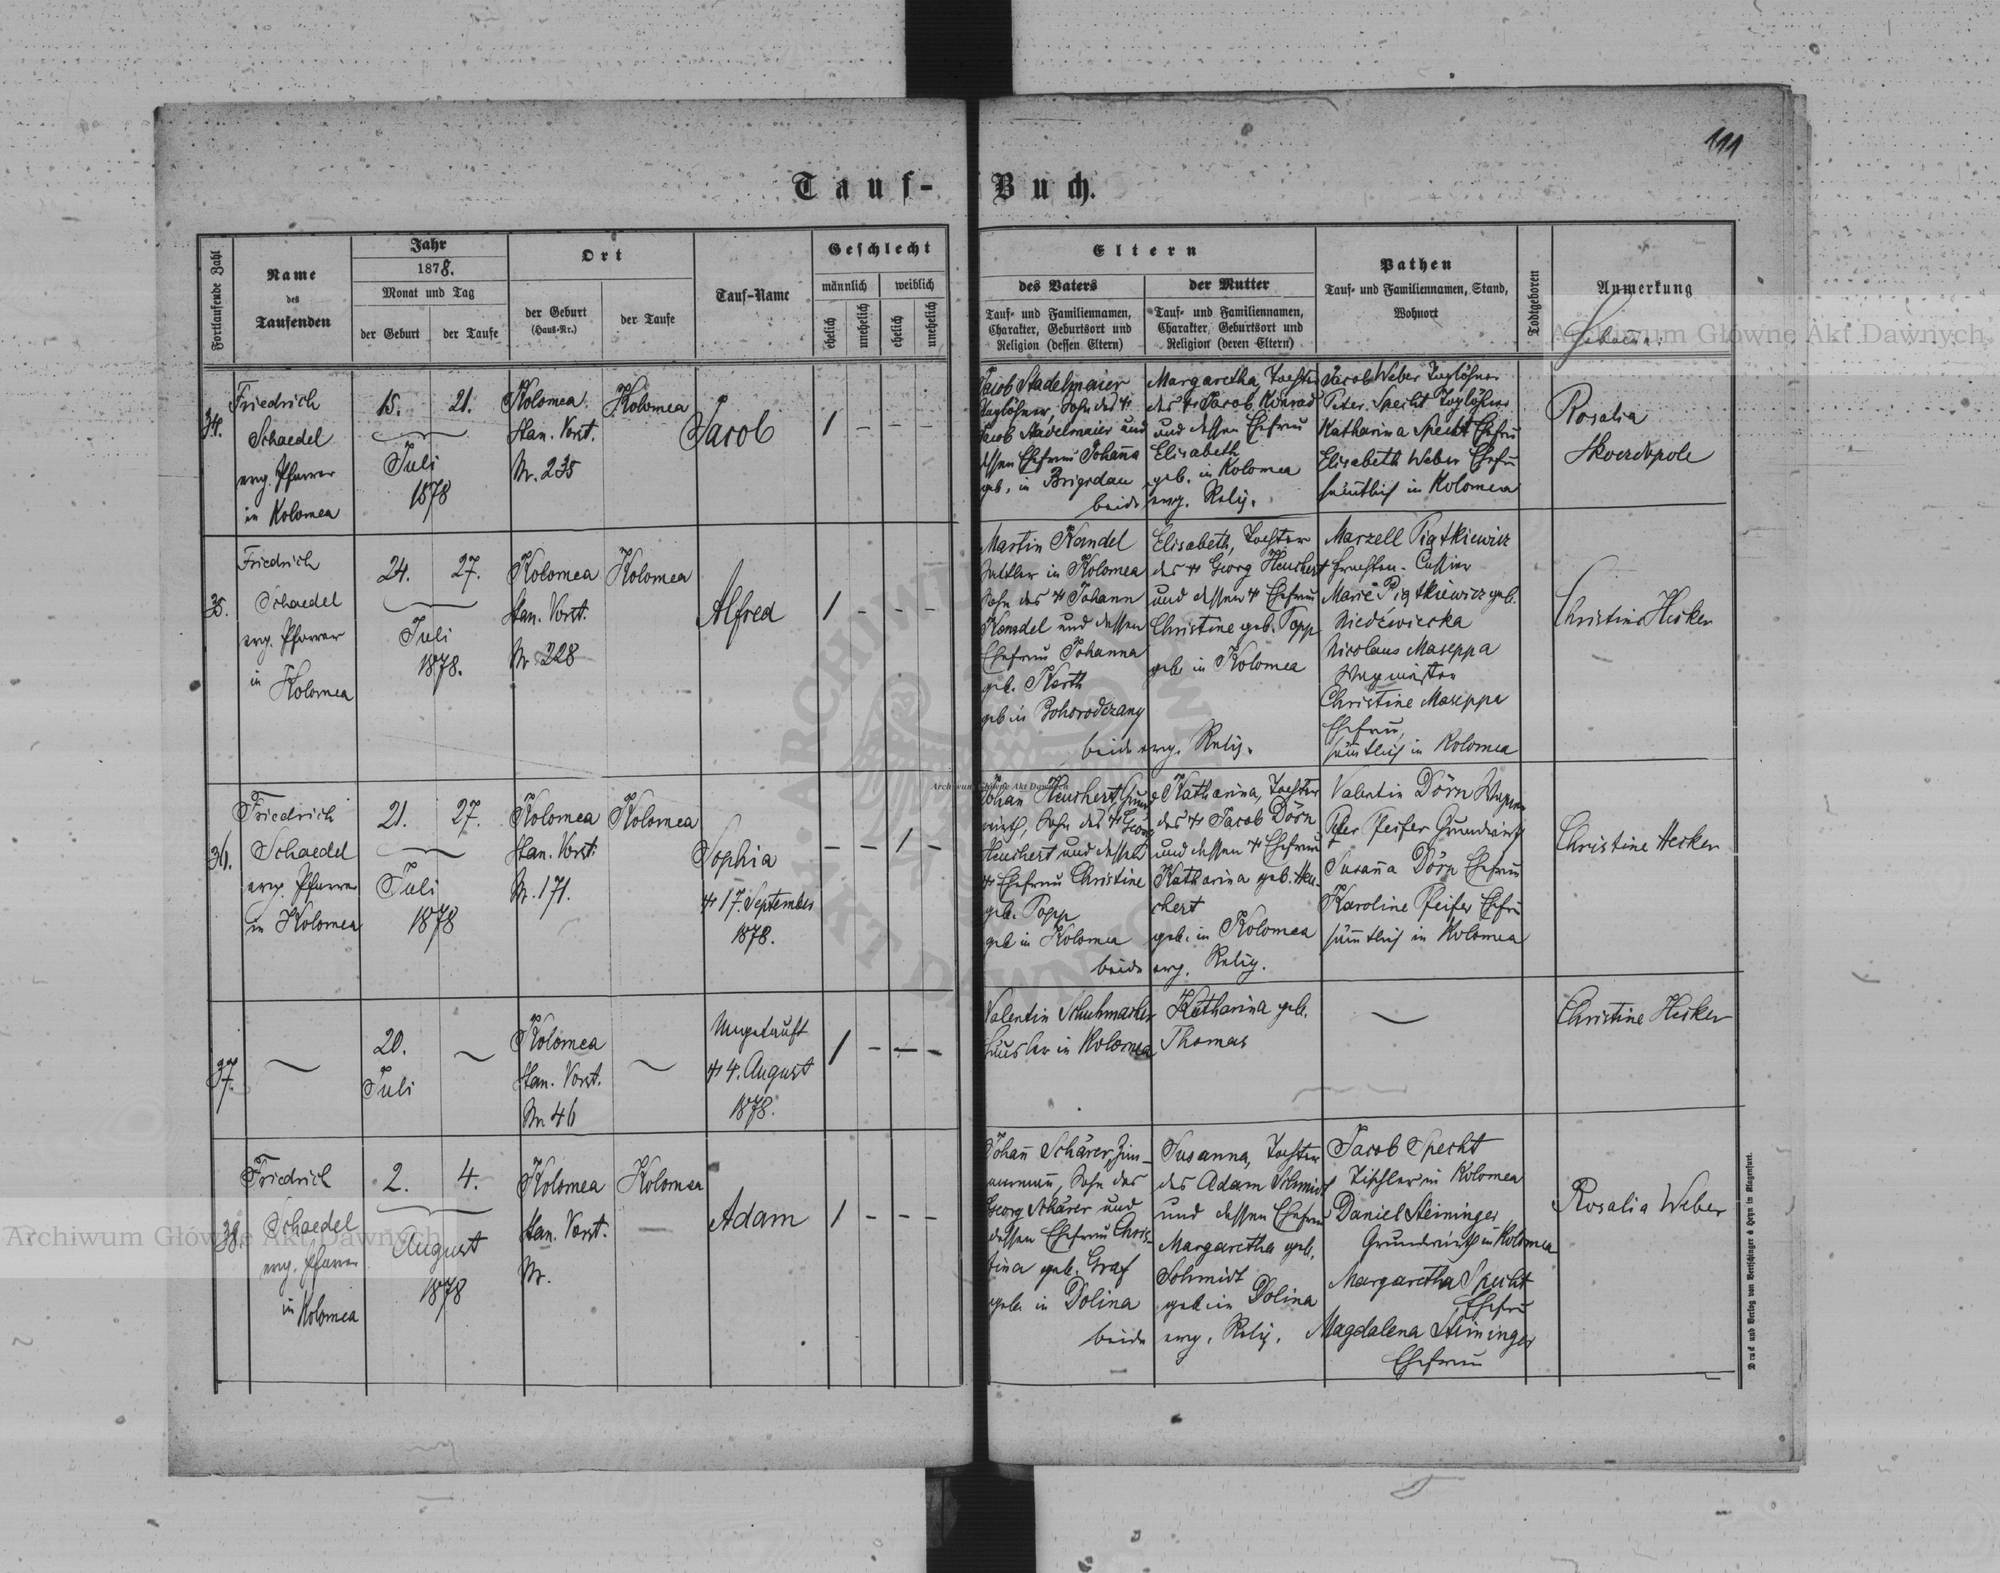 111
Tauf-Buch.
Fortlaufende Zahl
Name
des
Taufenden
Jahr
1878.
Monat und Tag
der Geburt
der Taufe
Ort
der Geburt
(Haus-Nr.)
der Taufe
Tauf-Name
Geschlecht
männlich
weiblich
ehelich
unehelich
ehelich
unehelich
Eltern
des Vaters
Tauf- und Familiennamen,
Charakter, Geburtsort und
Religion (dessen Eltern)
der Mutter
Tauf- und Familiennamen,
Charakter, Geburtsort und
Religion (deren Eltern)
Pathen
Tauf- und Familiennamen, Stand,
Wohnort
Todtgeboren
Anmerkung
34.
Friedrich
Schaedel
evg. Pfarrer
in Kolomea
15.
21.
Juli
1878
Kolomea
Stan. Vorst.
Nr. 235
Kolomea
Jacob
1 - - -
Jacob Stadelmaier
Taglöhner, Sohn des †
Jacob Stadelmaier und
dessen Ehefrau Johanna
geb. in Brigidau
Margaretha, Tochter
des † Jacob Konrad
und dessen Ehefrau
Elisabeth
geb. in Kolomea
beide evg. Relig.
Jacob Weber Taglöhner
Peter Specht Taglöhner
Katharina Specht Ehefrau
Elisabeth Weber Ehefr
sämtlich in Kolomea
Rosalia
35.
Friedrich
Schaedel
evg. Pfarrer
in
Kolomea
24.
27.
Juli
1878.
Kolomea
Stan. Vorst.
Nr 228
Kolomea
Alfred
1 - - -
Martin Kandel
Sattler in Kolomea
Sohn des † Johann
Kandel und dessen
Ehefrau Johanna
geb. Karth
geb in Bohorodczany
Elisabeth, Tochter
des † Georg Heuchert
und dessen † Ehefrau
Christine geb. Popp
geb in Kolomea
beide evg. Relig.
Marzell Piątkiewicz
Marie Piątkiewicz geb.
Niedźwiecka
Nicolaus Maseppa
Wagmeister
Christine Maseppa
Ehefrau,
sämtlich in Kolomea
Christine Hecker
36.
Friedrich
Schaedel
evg. Pfarrer
in Kolomea
21.
27.
Juli
1878
Kolomea
Stan. Vorst.
Nr. 171.
Kolomea
Sophia
† 17. September
1878.
- - 1 -
Johan Heuchert, Grund
wirth, Sohn des † Georg
Heuchert und dessen
† Ehefrau Christine
geb. Popp
geb in Kolomea
Katharina, Tochter
des † Jacob Dörn
und dessen † Ehefrau
Katharina geb. Heu-
chert
geb. in Kolomea
beide evg. Relig.
Valentin Dörn
Peter Pfeifer Grundwirth
Susanna Dörn Ehefrau
Karoline Pfeifer Ehefr
sämtlich in Kolomea
Christine Hecker
37.
20.
Juli
Kolomea
Stan. Vorst.
Nr 46
Ungetauft
† 4. August
1878.
1 - - -
Valentin Schuhmacher
Häusler in Kolomea
Katharina geb.
Thomas
Christine Hecker
38.
Friedrich
Schaedel
evg. Pfarrer
in Kolomea
2.
4.
August
1878
Kolomea
Stan. Vorst.
Nr.
Kolomea
Adam
1 - - -
Johann Schärer, Zim-
mermann, Sohn des
Georg Schärer und
dessen Ehefrau Chris-
tina geb. Graf
geb in Dolina
Susanna, Tochter
des Adam Schmidt
und dessen Ehefrau
Margaretha geb.
Schmidt
geb in Dolina
beide evg. Relig.
Jacob Specht
Tischler in Kolomea
Daniel Steininger
Grundwirth in Kolomea
Margaretha Specht
Ehefr
Magdalena Steininger
Ehefrau
Rosalia Weber
Druck und Verlag von Bertschinger & Heyn in Klagenfurt.
Archiwum Główne Akt Dawnych
Archiwum Główne Akt Dawnych
Archiwum Główne Akt Dawnych